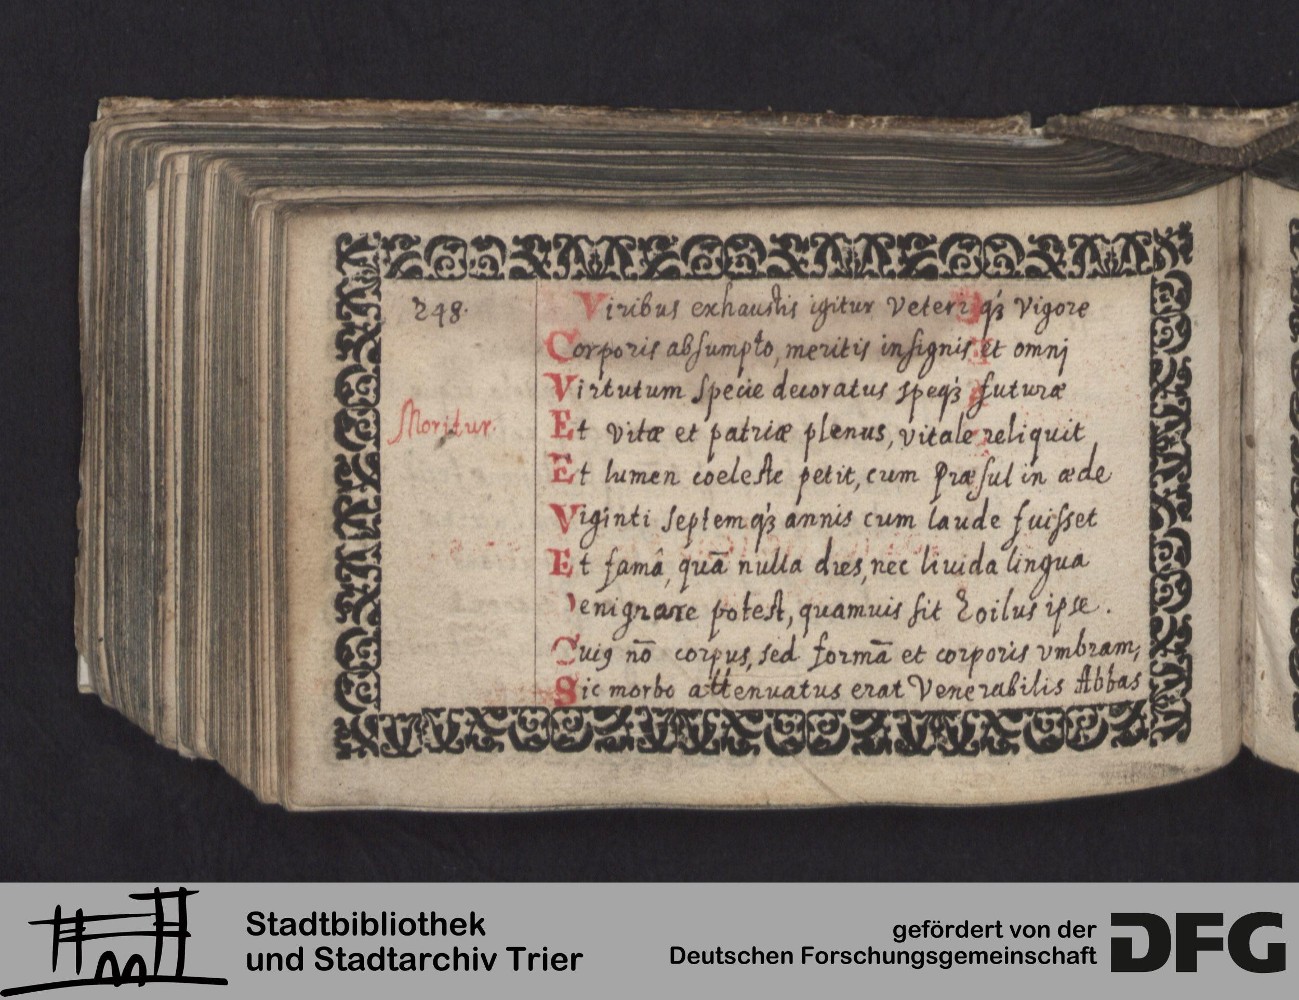 248.
Viribus exhaustis igitur Veteriq́ȝ Vigore
Corporis absumpto, meritis insignis et omni
Virtutum specie decoratus speq́ȝ futuræ
Moritur.
Et vitæ et patriæ plenus, vitale reliquit
Et lumen coeleste petit, cum Præsul in æde
Viginti septemq́ȝ annis cum laude fuisset
Et famâ, quā nulla dies, nec liuida lingua
Denigrare potest, quamuis sit Zoilus ipse.
Cuiꝯ nō corpus, sed formā et corporis vmbram,
Sic morbo attenuatus erat Venerabilis Abbas
Stadtbibliothek
und Stadtarchiv Trier
gefördert von der
Deutschen Forschungsgemeinschaft
DFG